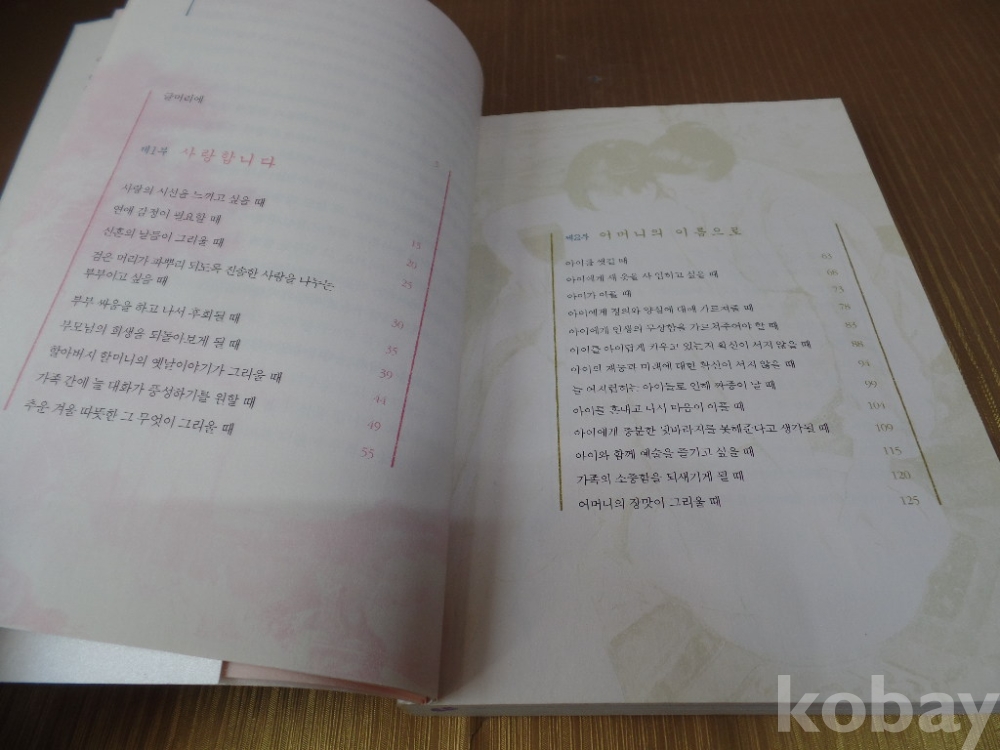 글머리에 5
제1부 사랑합니다
사랑의 시선을 느끼고 싶을 때 15
연애 감정이 필요할 때 20
신혼의 날들이 그리울 때 25
검은 머리가 파뿌리 되도록 진솔한 사랑을 나누는
부부이고 싶을 때 30
부부 싸움을 하고 나서 후회될 때 35
부모님의 희생을 되돌아보게 될 때 39
할아버지 할머니의 옛날이야기가 그리울 때 44
가족 간에 늘 대화가 풍성하기를 원할 때 49
추운 겨울 따뜻한 그 무엇이 그리울 때 55
제2부 어머니의 이름으로
아이를 씻길 때 63
아이에게 새 옷을 사 입히고 싶을 때 68
아이가 아플 때 73
아이에게 정의와 양심에 대해 가르쳐줄 때 78
아이에게 인생의 무상함을 가르쳐주어야 할 때 83
아이를 아이답게 키우고 있는지 확신이 서지 않을 때 88
아이의 재능과 미래에 대한 확신이 서지 않을 때 94
늘 어지럽히는 아이들로 인해 짜증이 날 때 99
아이를 혼내고 나서 마음이 아플 때 104
아이에게 충분한 뒷바라지를 못해준다고 생각될 때 109
아이와 함께 예술을 즐기고 싶을 때 115
가족의 소중함을 되새기게 될 때 120
어머니의 장맛이 그리울 때 125
kobay